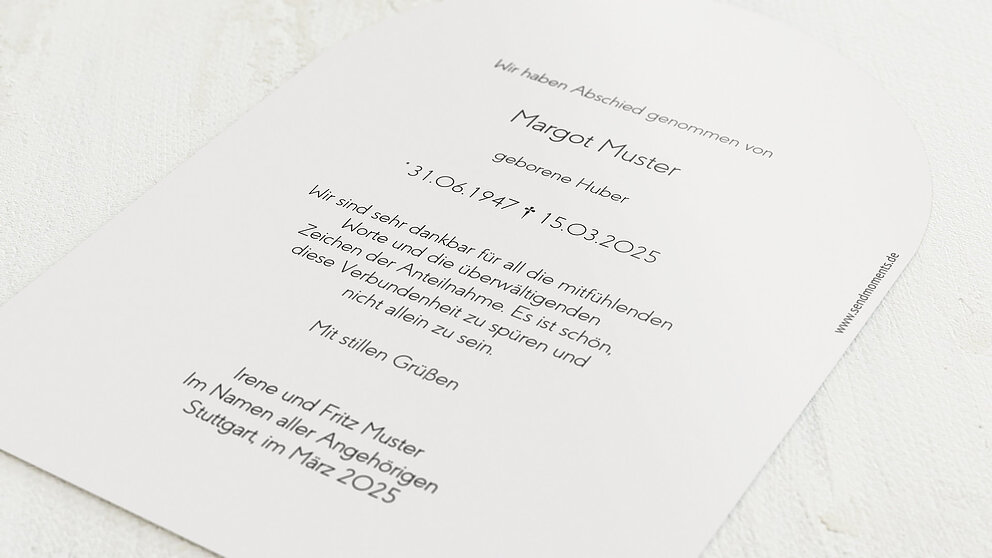 Wir haben Abschied genommen von
Margot Muster
geborene Huber
· 31.06.1947 ✝ 15.03.2025
Wir sind sehr dankbar für all die mitfühlenden
Worte und die überwältigenden
Zeichen der Anteilnahme. Es ist schön,
diese Verbundenheit zu spüren und
nicht allein zu sein.
Mit stillen Grüßen
Irene und Fritz Muster
Im Namen aller Angehörigen
Stuttgart, im März 2025
www.sendmoments.de